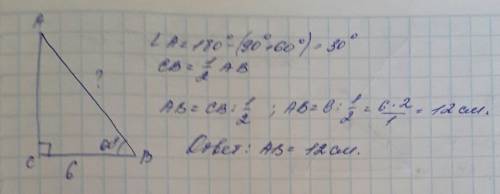 A
∠A=180°-(90°+60°)=30°
CB=1/2 AB
?
AB=CB:1/2 ; AB=6:1/2=6·2/1=12см.
60°
C
B
6
Ответ: AB=12см.